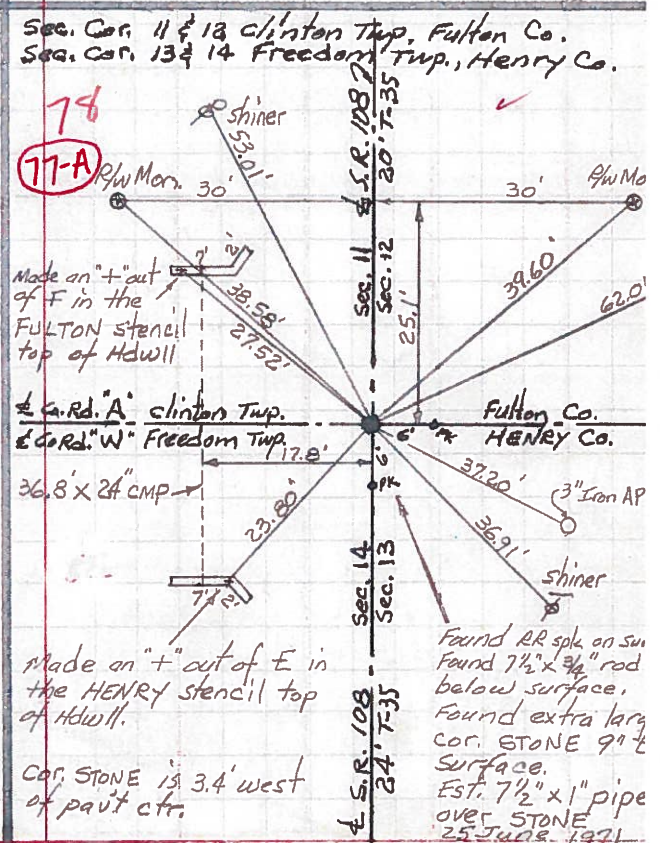 Sec. Cor. 11 & 12 Clinton Twp, Fulton Co.
Sec. Cor. 13 & 14 Freedom Twp., Henry Co.
78
77-A
shiner
53.01'
℄ S.R. 108
20' T-35
R/W Mon.
30'
30'
R/W Mo
Sec. 11
Sec. 12
25.1'
39.60'
62.0'
7'
2'
Made an "+" out
of F in the
FULTON stencil
top of Hdwll
38.58'
27.52'
℄ Co. Rd. "A" Clinton Twp.
Fulton Co.
℄ Co Rd. "W" Freedom Twp.
HENRY Co.
6'
PK
17.8'
6'
PK
36.8' x 24" CMP
37.20'
3" Iron AP
23.80'
36.91'
Sec. 14
Sec. 13
shiner
7'
2'
Made an "+" out of E in
the HENRY stencil top
of Hdwll.
Cor. STONE is 3.4' west
of pav't ctr.
℄ S.R. 108
24' T-35
Found RR spk on su
Found 7½" x ¾" rod
below surface.
Found extra larg
Cor. STONE 9"
Surface.
Est. 7½" x 1" pipe
over STONE
25 June 1971